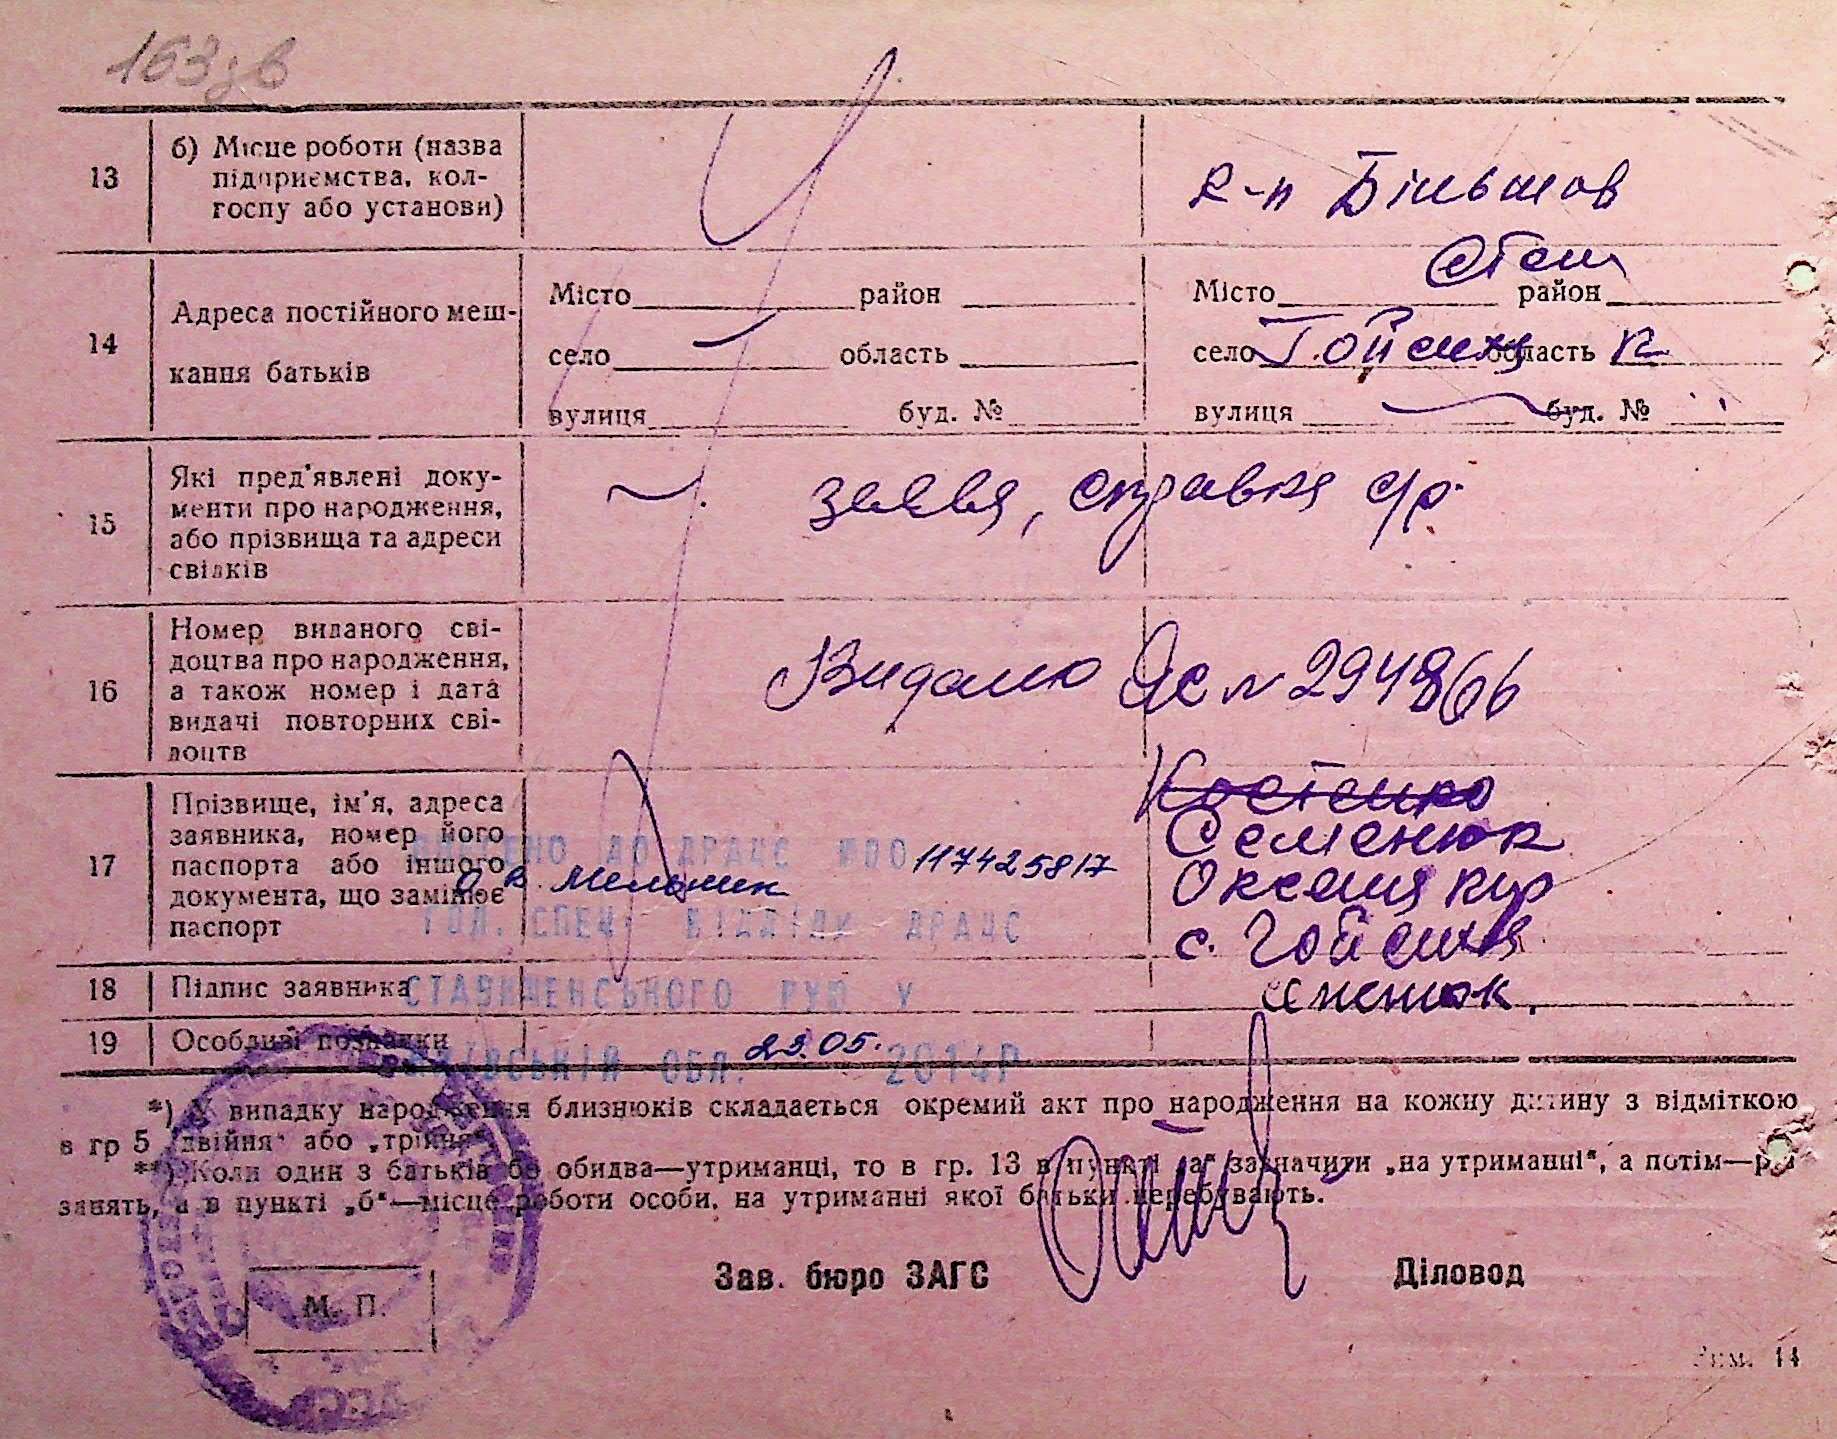 163зв
13 б) Місце роботи (назва підприємства, колгоспу або установи)
к-п Більшов
Став
14 Адреса постійного мешкання батьків
Місто район
село область
вулиця буд. №
Місто район
село область К
вулиця буд. №
15 Які пред'явлені документи про народження, або прізвища та адреси свідків
заява, справка с/р.
16 Номер виданого свідоцтва про народження, а також номер і дата видачі повторних свідоцтв
Видано № 294866
17 Прізвище, ім'я, адреса заявника, номер його паспорта або іншого документа, що замінює паспорт
Костенко
Семенюк
с.
ДО ДРАЦС 00117425817
Мельник
ГОЛ. СПЕЦ. ВІДДІЛУ ДРАЦС
18 Підпис заявника
СТАВИЩЕНСЬКОГО РУЮ У
19 Особливі познаки
КИЇВСЬКІЙ ОБЛ. 23.05. 2014Р
*) У випадку народження близнюків складається окремий акт про народження на кожну дитину з відміткою
в гр 5 „двійня" або „трійня"
**) Коли один з батьків бо обидва—утриманці, то в гр. 13 в пункті „а" зазначити „на утриманні", а потім—рід
занять, а в пункті „б"—місце роботи особи, на утриманні якої батьки перебувають.
Зав. бюро ЗАГС Діловод
М. П.
14